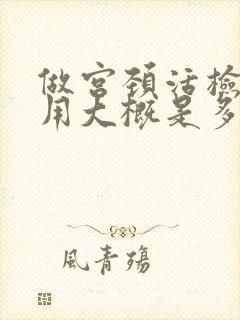 做宫颈活检
用大概是多
風青殤